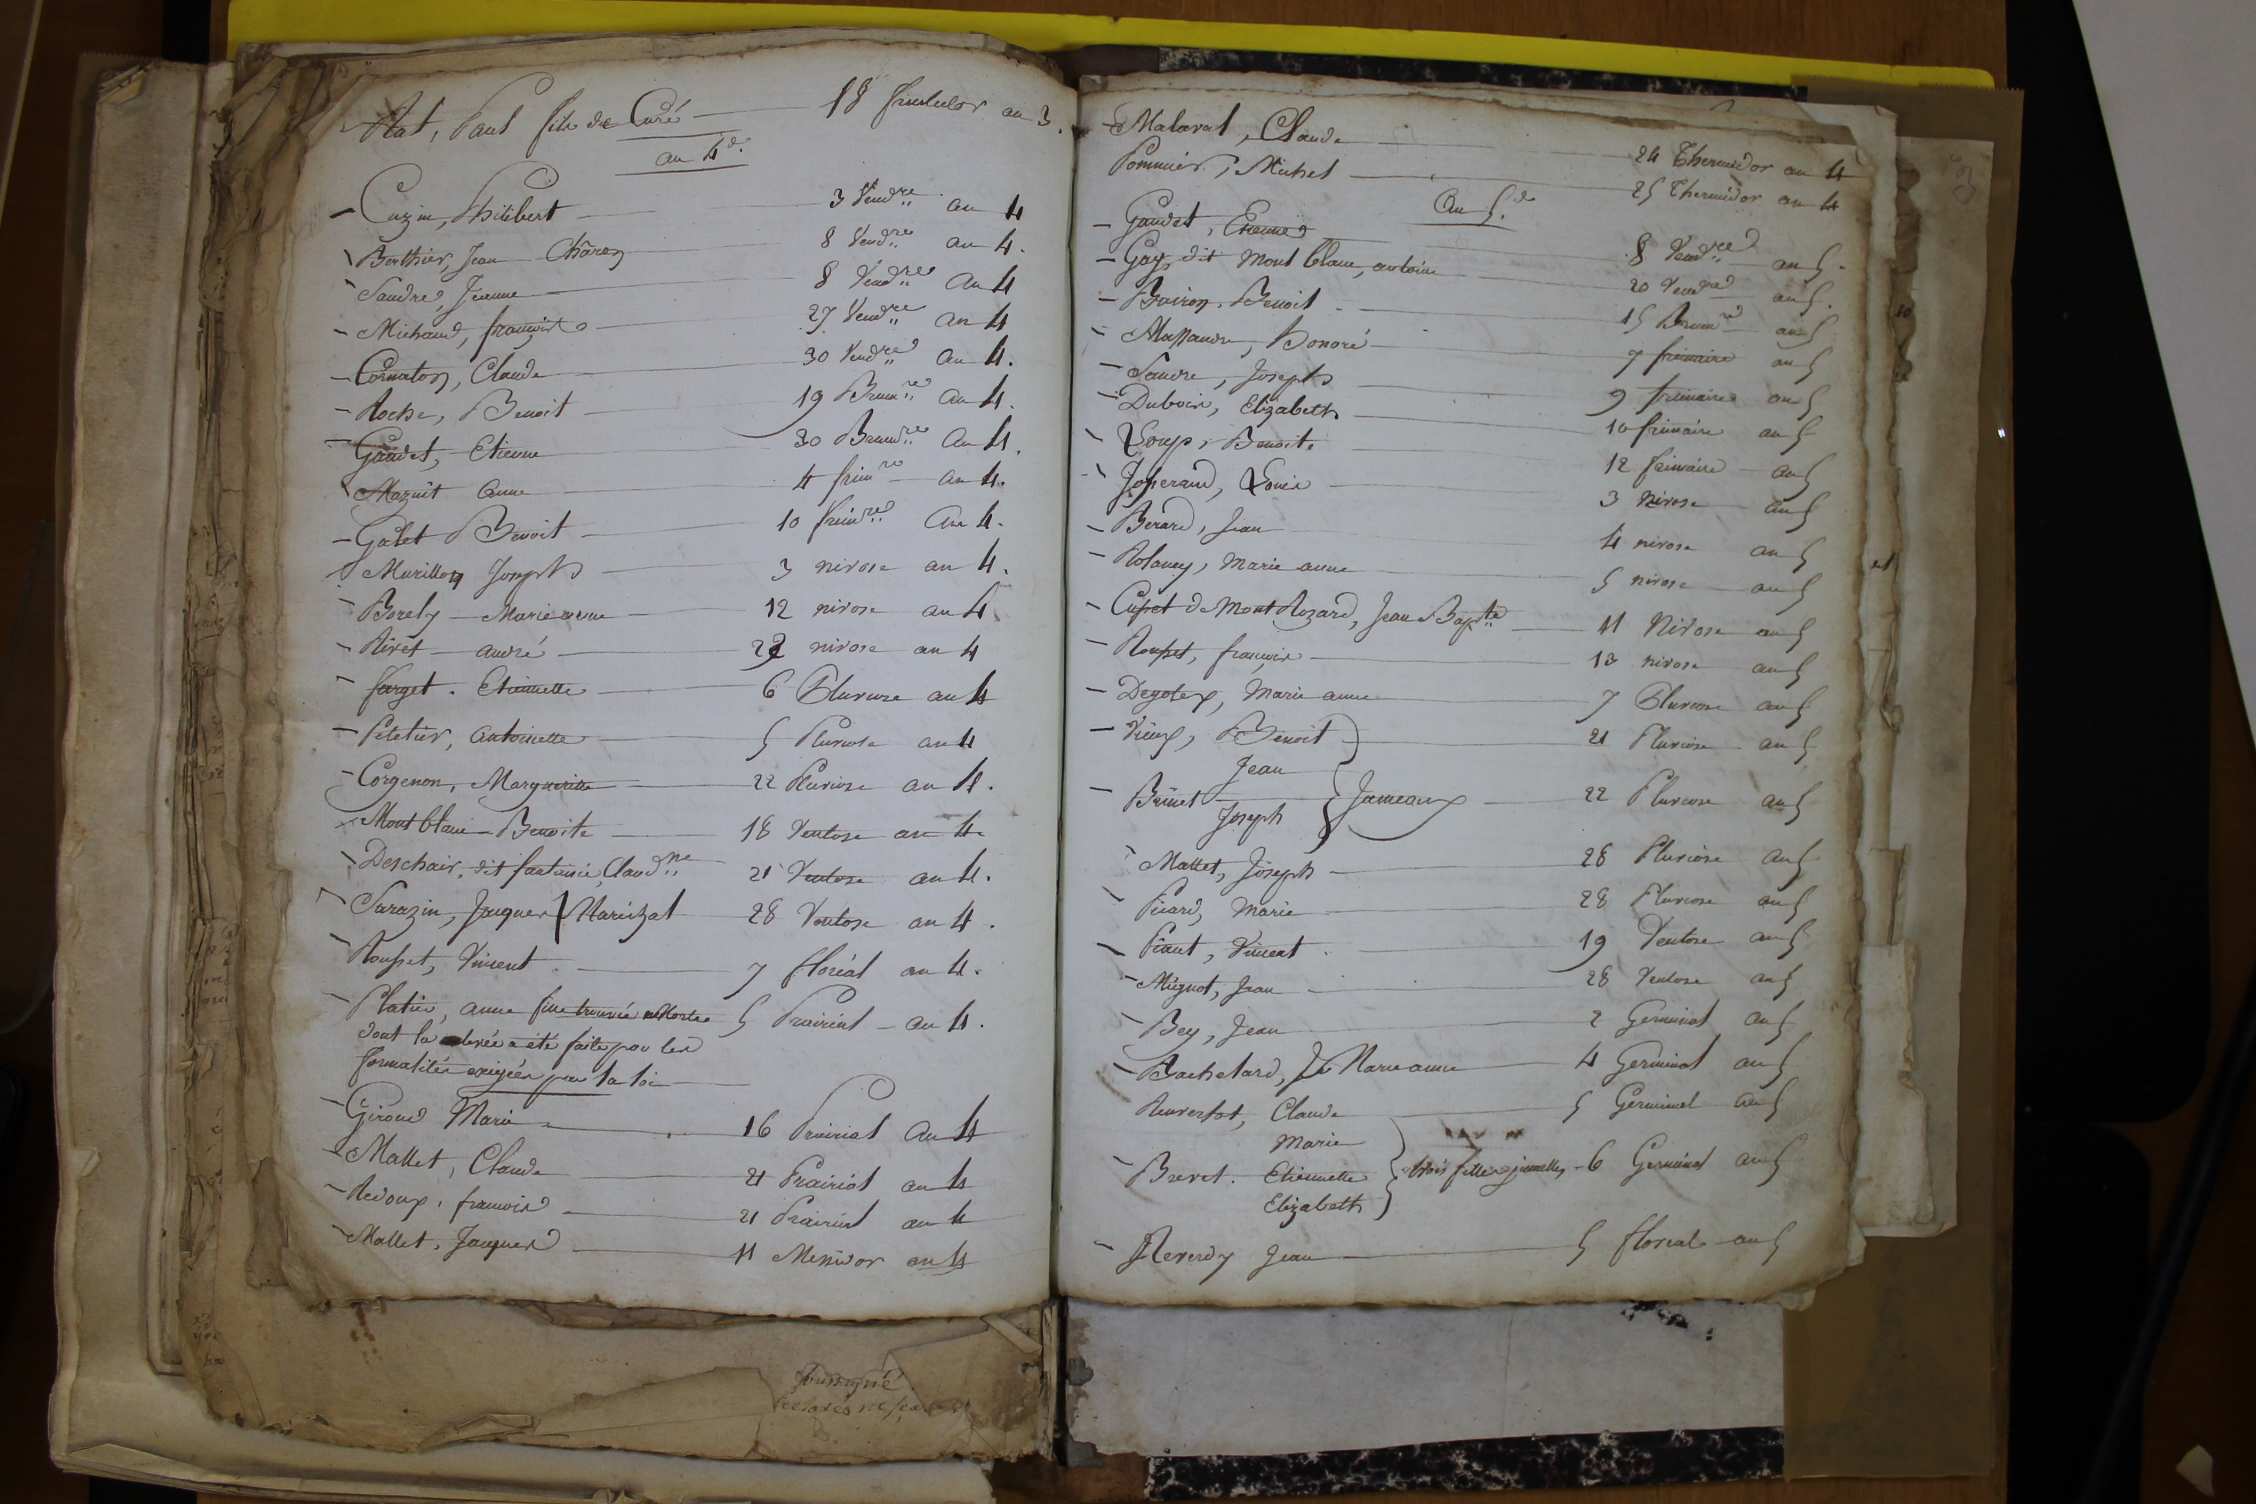 Rat, Paul fils de Curé 18 fructidor an 3.
an 4e.
Cuzin, Philibert 3 Vendre an 4
Berthier, Jean Châron 8 Vendre an 4.
Saudre, Jeanne 8 Vendre an 4
Michaud, françois 27 Vendre an 4
Cornaton, Claude 30 Vendre an 4.
Roche, Benoit 19 Brumre an 4.
Gaudet, Etienne 30 Brumre an 4.
Mazuit Anne 4 frimre an 4.
Galet Benoit 10 frimre an 4.
Murillon Joseph 3 nivose an 4.
Borely Marie anne 12 nivose an 4
Rivet andré 22 nivose an 4
farget. Etiennette 6 Pluviose an 4
Peletier, Antoinette 5 Pluviose an 4
Corgenon, Marguerite 22 Pluviose an 4.
Montblanc Benoite 18 Ventose an 4.
Deschair, dit fontaine, Claudne 21 Ventose an 4.
Sarazin, Jacques Maréchal 28 Ventose an 4.
Rousset, Vincent 7 floréal an 4.
Platier, anne fille trouvée morte 5 Prairial an 4.
dont la levée a été faite par les
formalités exigées par la loi
Giroud Marie 16 Prairial an 4
Mallet, Claude 21 Prairial an 4
Redoux, francois 21 Prairial an 4
Mallet, Jacques 11 Messidor an 4
Malaval, Claude 24 Thermidor an 4
Pommier, Michel 25 Thermidor an 4
An 5.e
Gaudet, Etienne 8 Vendre an 5.
Gay, dit Mont blanc, antoine 20 Vendre an 5.
Boiron, Benoit 15 Brumre an 5
Massaudre, Honoré 7 frimaire an 5
Saudre, Joseph 9 frimaire an 5
Dubois, Elizabeth 10 frimaire an 5
Loup, Benoite 12 frimaire an 5
Josserand, Louis 3 nivose an 5
Bérard, Jean 4 nivose an 5
Rolancy, Marie anne 5 nivose an 5
Cusset de Mont Rozard, Jean Bapte 11 Nivose an 5
Rousset, françois 13 nivose an 5
Degoley, Marie anne 7 Pluviose an 5
Vieux, Benoit 21 Pluviose an 5
Jean
Brunet Jumeaux 22 Pluviose an 5
Joseph
Mallet, Joseph 28 Pluviose an 5
Picard, Marie 28 Pluviose an 5
Picaut, Vincent 19 Ventose an 5
Mignot, Jean 28 Ventose an 5
Bey, Jean 2 Germinal an 5
Bachelard, Marie anne 4 Germinal an 5
Claude 5 Germinal an 5
Marie
Brevet. Etiennette trois filles jumelles 6 Germinal an 5
Elizabeth
Reverdy Jean 5 floreal an 5